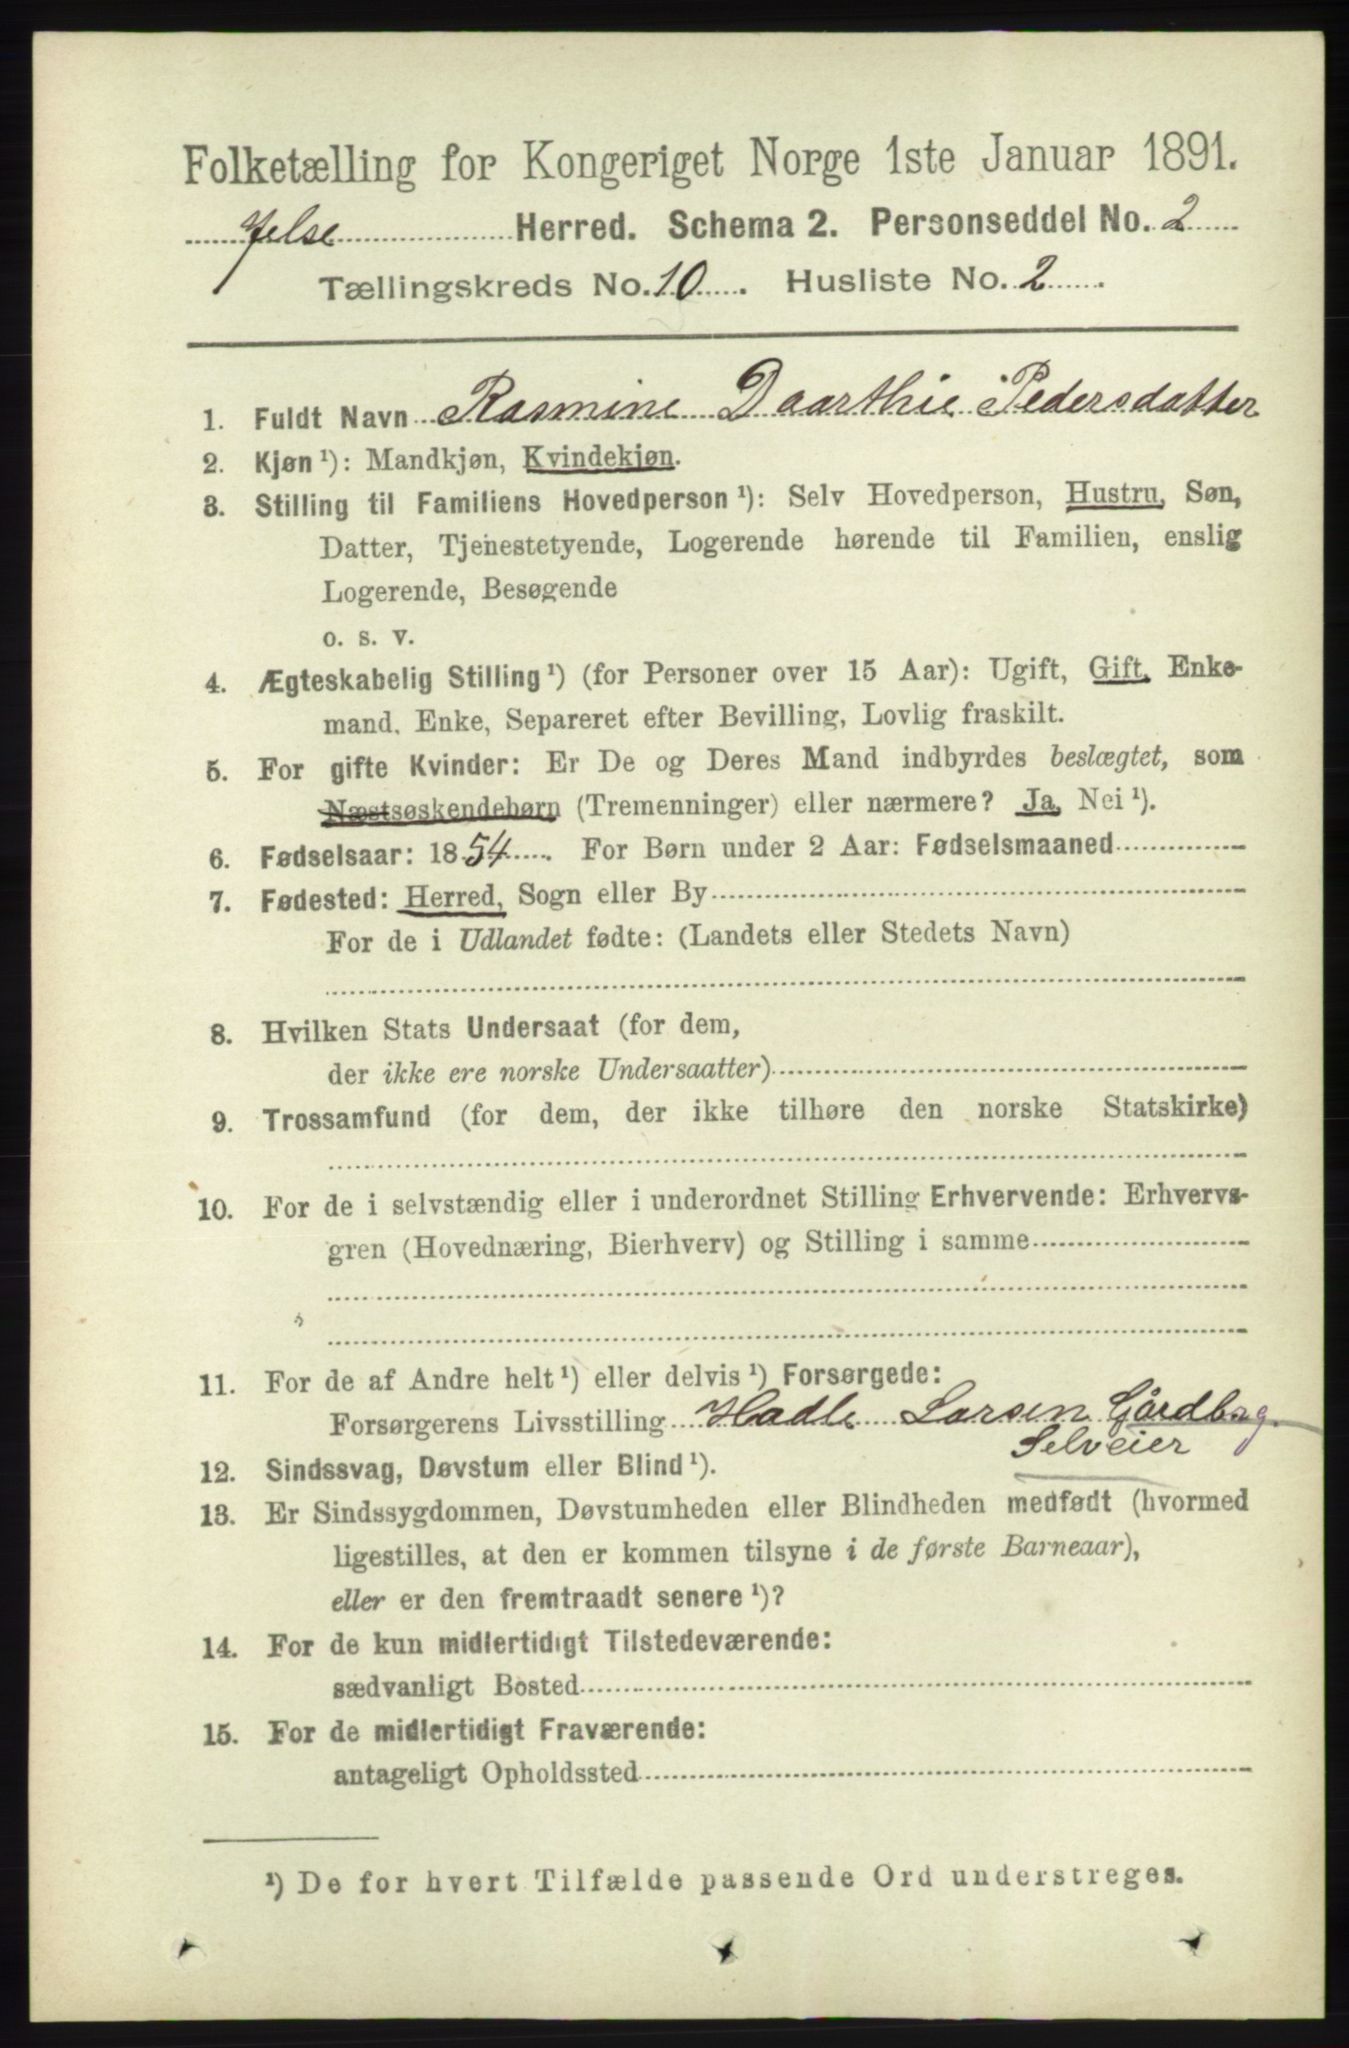 Folketælling for Kongeriget Norge 1ste Januar 1891.
Jelse Herred. Schema 2. Personseddel No. 2
Tællingskreds No. 10. Husliste No. 2.
1. Fuldt Navn Rasmine Daarthie Pedersdatter
2. Kjøn ¹): Mandkjøn, Kvindekjøn.
3. Stilling til Familiens Hovedperson ¹): Selv Hovedperson, Hustru, Søn,
Datter, Tjenestetyende, Logerende hørende til Familien, enslig
Logerende, Besøgende
o. s. v.
4. Ægteskabelig Stilling ¹) (for Personer over 15 Aar): Ugift, Gift, Enke-
mand, Enke, Separeret efter Bevilling, Lovlig fraskilt.
5. For gifte Kvinder: Er De og Deres Mand indbyrdes beslægtet, som
Næstsøskendebørn (Tremenninger) eller nærmere? Ja, Nei ¹).
6. Fødselsaar: 1854. For Børn under 2 Aar: Fødselsmaaned
7. Fødested: Herred, Sogn eller By
For de i Udlandet fødte: (Landets eller Stedets Navn)
8. Hvilken Stats Undersaat (for dem,
der ikke ere norske Undersaatter)
9. Trossamfund (for dem, der ikke tilhøre den norske Statskirke)
10. For de i selvstændig eller i underordnet Stilling Erhvervende: Erhvervs-
gren (Hovednæring, Bierhverv) og Stilling i samme
11. For de af Andre helt ¹) eller delvis ¹) Forsørgede:
Forsørgerens Livsstilling Hadle Larsen Gårdbrug.
Selveier
12. Sindssvag, Døvstum eller Blind ¹).
13. Er Sindssygdommen, Døvstumheden eller Blindheden medfødt (hvormed
ligestilles, at den er kommen tilsyne i de første Barneaar),
eller er den fremtraadt senere ¹)?
14. For de kun midlertidigt Tilstedeværende:
sædvanligt Bosted
15. For de midlertidigt Fraværende:
antageligt Opholdssted
¹) De for hvert Tilfælde passende Ord understreges.